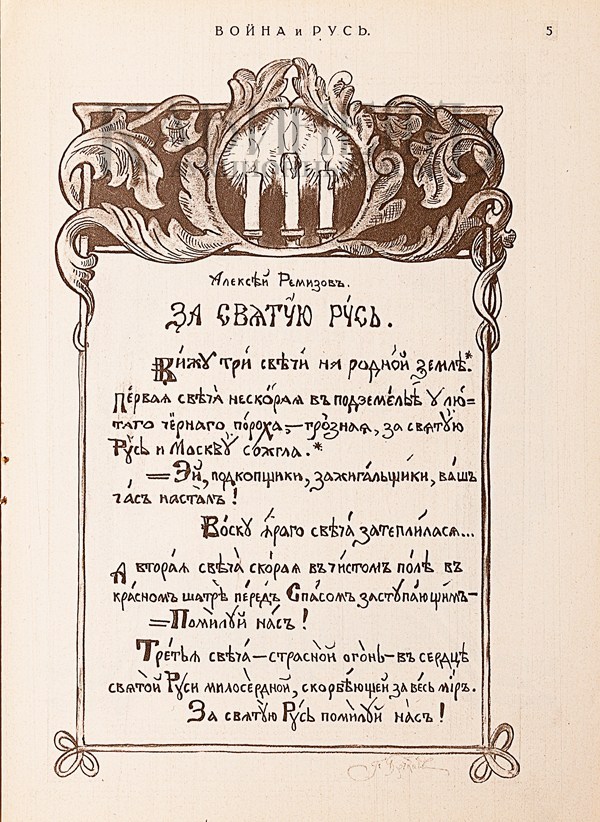 ВОЙНА и РУСЬ.
5
Алексѣй Ремизовъ.
ЗА СВЯТУЮ РУСЬ.
Вижу три свѣчи на родной землѣ.*
Первая свѣча нескорая въ подземельѣ у лю=
таго чёрнаго пороха,—грозная, за святую
Русь и Москву сожгла.*
=Эй, подкопщики, зажигальщики, вашъ
часъ насталъ!
Воску яраго свѣча затеплилася...
А вторая свѣча скорая въ чистомъ полѣ въ
красномъ шатрѣ передъ Спасомъ заступающимъ—
=Помилуй насъ!
Третья свѣча—страсной огонь—въ сердцѣ
святой Руси милосердной, скорбѣющей за весь міръ.
За святую Русь помилуй насъ!